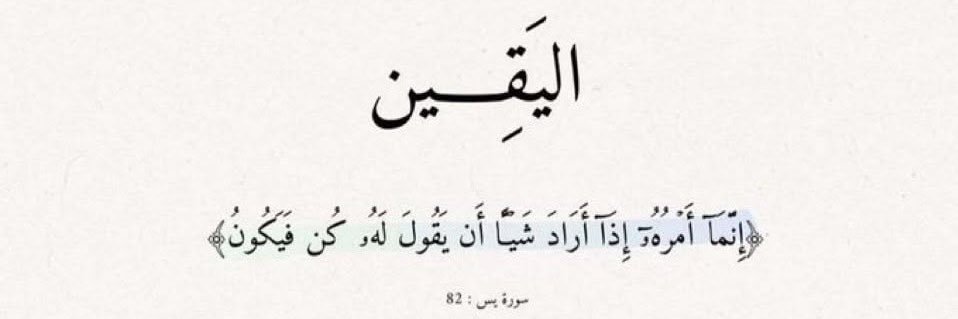 اليَقِـــين
﴿إِنَّمَآ أَمۡرُهُۥٓ إِذَآ أَرَادَ شَيۡـًٔا أَن يَقُولَ لَهُۥ كُن فَيَكُونُ﴾
سورة يس : 82